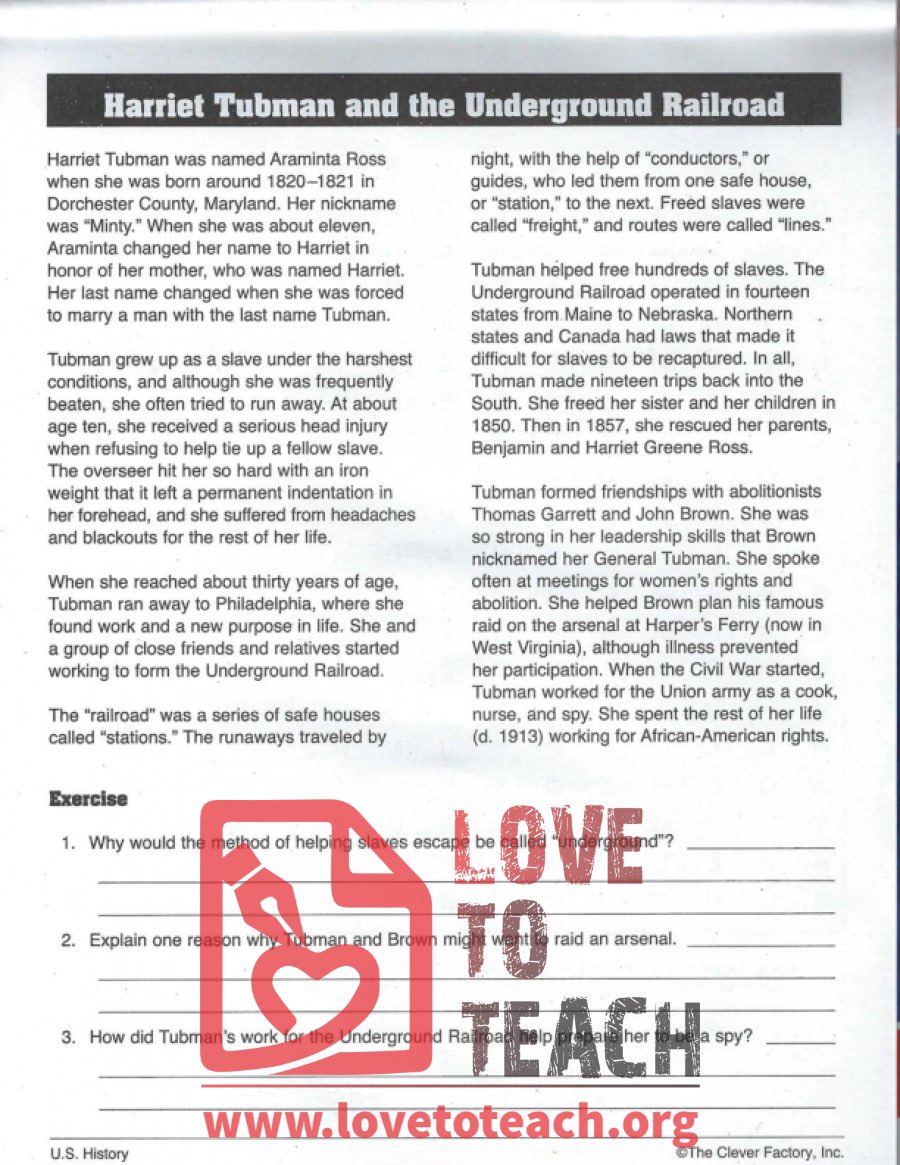 Harriet Tubman and the Underground Railroad
Harriet Tubman was named Araminta Ross
when she was born around 1820–1821 in
Dorchester County, Maryland. Her nickname
was “Minty.” When she was about eleven,
Araminta changed her name to Harriet in
honor of her mother, who was named Harriet.
Her last name changed when she was forced
to marry a man with the last name Tubman.
Tubman grew up as a slave under the harshest
conditions, and although she was frequently
beaten, she often tried to run away. At about
age ten, she received a serious head injury
when refusing to help tie up a fellow slave.
The overseer hit her so hard with an iron
weight that it left a permanent indentation in
her forehead, and she suffered from headaches
and blackouts for the rest of her life.
When she reached about thirty years of age,
Tubman ran away to Philadelphia, where she
found work and a new purpose in life. She and
a group of close friends and relatives started
working to form the Underground Railroad.
The “railroad” was a series of safe houses
called “stations.” The runaways traveled by
night, with the help of “conductors,” or
guides, who led them from one safe house,
or “station,” to the next. Freed slaves were
called “freight,” and routes were called “lines.”
Tubman helped free hundreds of slaves. The
Underground Railroad operated in fourteen
states from Maine to Nebraska. Northern
states and Canada had laws that made it
difficult for slaves to be recaptured. In all,
Tubman made nineteen trips back into the
South. She freed her sister and her children in
1850. Then in 1857, she rescued her parents,
Benjamin and Harriet Greene Ross.
Tubman formed friendships with abolitionists
Thomas Garrett and John Brown. She was
so strong in her leadership skills that Brown
nicknamed her General Tubman. She spoke
often at meetings for women’s rights and
abolition. She helped Brown plan his famous
raid on the arsenal at Harper’s Ferry (now in
West Virginia), although illness prevented
her participation. When the Civil War started,
Tubman worked for the Union army as a cook,
nurse, and spy. She spent the rest of her life
(d. 1913) working for African-American rights.
Exercise
1. Why would the method of helping slaves escape be called “underground”?
2. Explain one reason why Tubman and Brown might want to raid an arsenal.
3. How did Tubman’s work for the Underground Railroad help prepare her to be a spy?
LOVE
TO
TEACH
www.lovetoteach.org
U.S. History
©The Clever Factory, Inc.